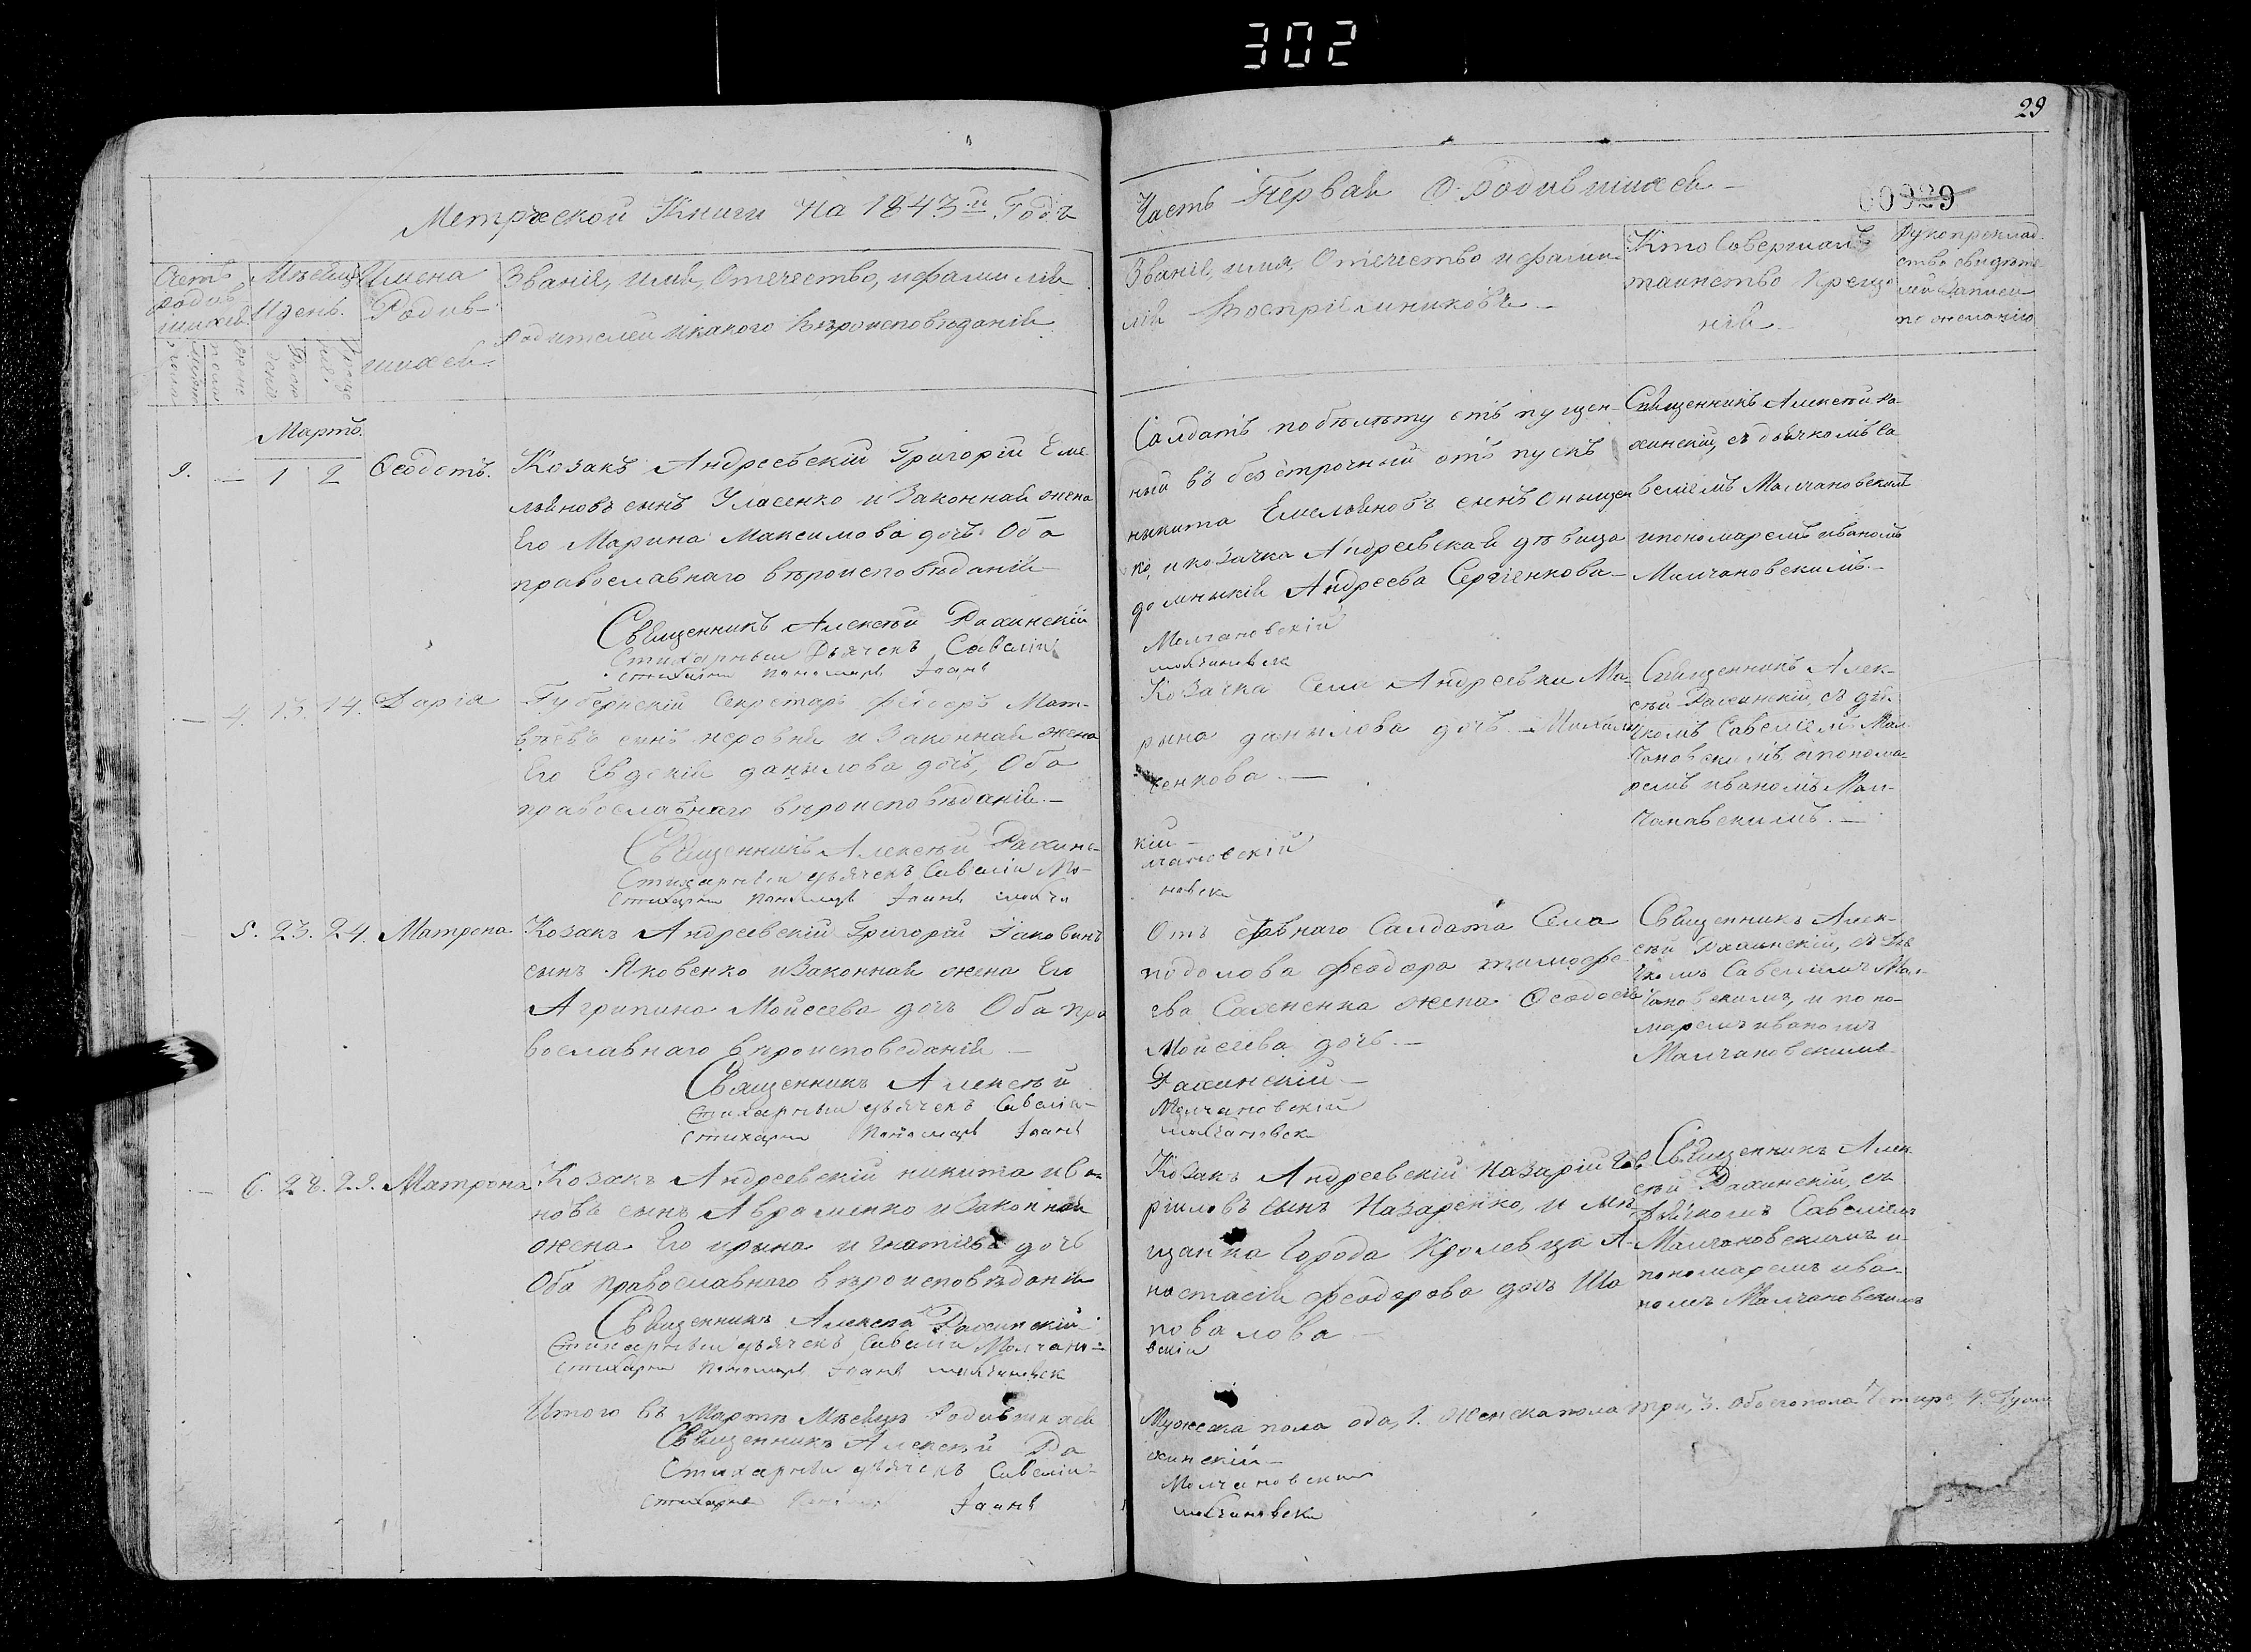 302
29
00929
Метрческой Книги На 1843й Годъ
Часть Первая О родившихся
Счетъ родив шихся
Мѣсяцъ И день.
Имена Родив- шихся
Званіе, имя, Отечество, и фамилія
Родителей и какого вѣроисповѣданія
Званіе, имя, Отечество и фами-
лія Воспріемниковъ
Кто Совершалъ
таинство Креще
нія
Рукоприклад
ство свидѣте
лей Записи
по желанію
Мартъ
1 2 Ѳеодотъ.
Козакъ Андреевскій Григорій Еме
льяновъ сынъ Уласенко и Законная жена
Его Марина Максимова дочь Оба
православнаго вѣроисповѣданія
Священникъ Алексѣй Рахинскій
Стихарный Дьячекъ Савелій
Стихарны Пономарь Іоанъ
Салдатъ по билѣту отъ пущен-
ный въ безсрочный отъ пускъ
никита Емельяновъ сынъ Онищен
ко, и козачка Андреевская дѣвица
домникія Андреева Сергіенкова
Молчановскій
молчановск
Священникъ Алексѣй ра
хинскій, съ дьячкомъ Са
веліемъ Малчановскимъ
и пономаремъ иваномъ
Малчановскимъ.
4. 13. 14. Дарія
Губернскій Секретарь феодоръ Мат-
вѣевъ сынъ неровня и Законная жена
Его Евдокія данилова дочь, Оба
православнаго вѣроисповѣданія.
Священникъ Алексѣй Рахинс-
Стихарный дьячекъ Савелій Мо-
Стихарны Пономарь Іоанъ молча
Козачка Села Андреевки Ма-
рына данылова дочь
ченкова
кій
лчановскій
новск
Священникъ Алек-
сѣй Рахинскій, съ дья-
чкомъ Савеліемъ Мал-
чановскимъ и понома-
ремъ иваномъ Мал-
чановскимъ.
5. 23. 24. Матрона
Козакъ Андреевскій Григорій Іаковивъ
сынъ Яковенко и Законная жена Его
Агрипина Мойсеева дочь Оба пра
вославнаго вѣроисповеданія
Священникъ Алексѣй
Стихарный дьячекъ Савелій
Стихарны Пономарь Іоанъ
Отъ ставнаго Салдата Села
подолова феодора тимофе
ева Сахненка жена Ѳеодосія
Мойсеева дочь.
Рахинскій
Молчановскій
молчановск
Священникъ Алек-
сѣй Рахинскій, съ дья
чкомъ Савеліемъ Мал-
чановскимъ, и поно-
маремъ иваномъ
Малчановскимъ
6. 28. 29. Матрона
Козакъ Андреевскій никита ива
новъ сынъ Авраменко и Законная
жена Его ирына игнатіева дочь
Оба православнаго вѣроисповѣданія
Священникъ Алексѣй Рахинскій
Стихарный дьячекъ Савелій Молчано-
Стихарны Пономарь Іоанъ молчановск
Козакъ Андреевскій Назарій Гав
ріиловъ сынъ Назаренко, и мѣ
щанка Города Кролевца А-
настасія феодорова дочь Ша
повалова
вскій
Священникъ Алек
сѣй Рахинскій, съ
дьячкомъ Савеліемъ
Малчановскимъ и
пономаремъ ива-
номъ Малчановскимъ
Итого въ Мартѣ Мѣсяцѣ Родившихся
Мужеска пола 1. Женска пола три, 3. обоего пола Четыре, 4. Душъ
Священникъ Алексѣй Ра
хинскій
Стихарный дьячекъ Савелій
Молчановскій
Стихарны Іоанъ
молчановск